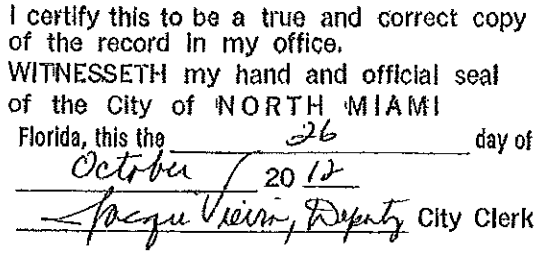 I certify this to be a true and correct copy
of the record in my office.
WITNESSETH my hand and official seal
of the City of NORTH MIAMI
Florida, this the 26 day of
October 20 12
Jacqui Vieira, Deputy City Clerk